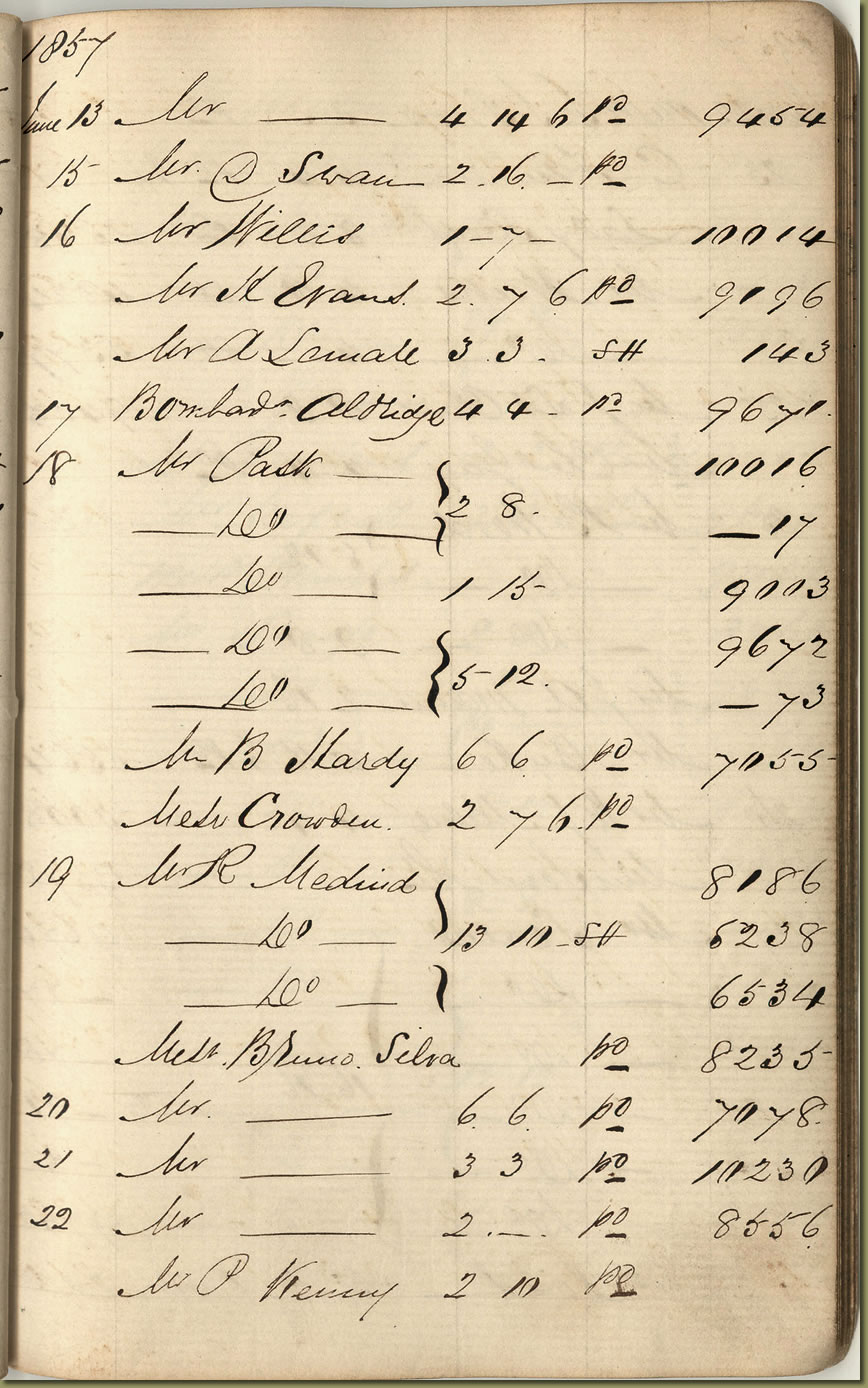 1857
June 13 Mr —— 4 14 6 pd 9454
15 Mr. D Swan 2.16. — pd
16 Mr Willis 1 - 7 - 10014
Mr H Evans. 2. 7 6 pd 9196
Mr A Lemale 3.3. SH 143
17 Bombadr. Aldridge 4 4 - pd 9671.
18 Mr Pask — 10016
— Do — 2 8. — 17
— Do — 1 15 - 9003
— Do — 9672
— Do — 5 - 12. — 73
Mr B Hardy 6 6. pd 7055
Messr Crowden. 2 7 6. pd
19 Mr R Medind 8186
— Do — 13 10 - SH 6238
— Do — 6534
Messr. Bruno. Silva pd 8235
20 Mr. —— 6. 6. pd 7078.
21 Mr —— 3 3 pd 10230
22 Mr —— 2. —. pd 8556
Mr P Kenny 2 10 pd